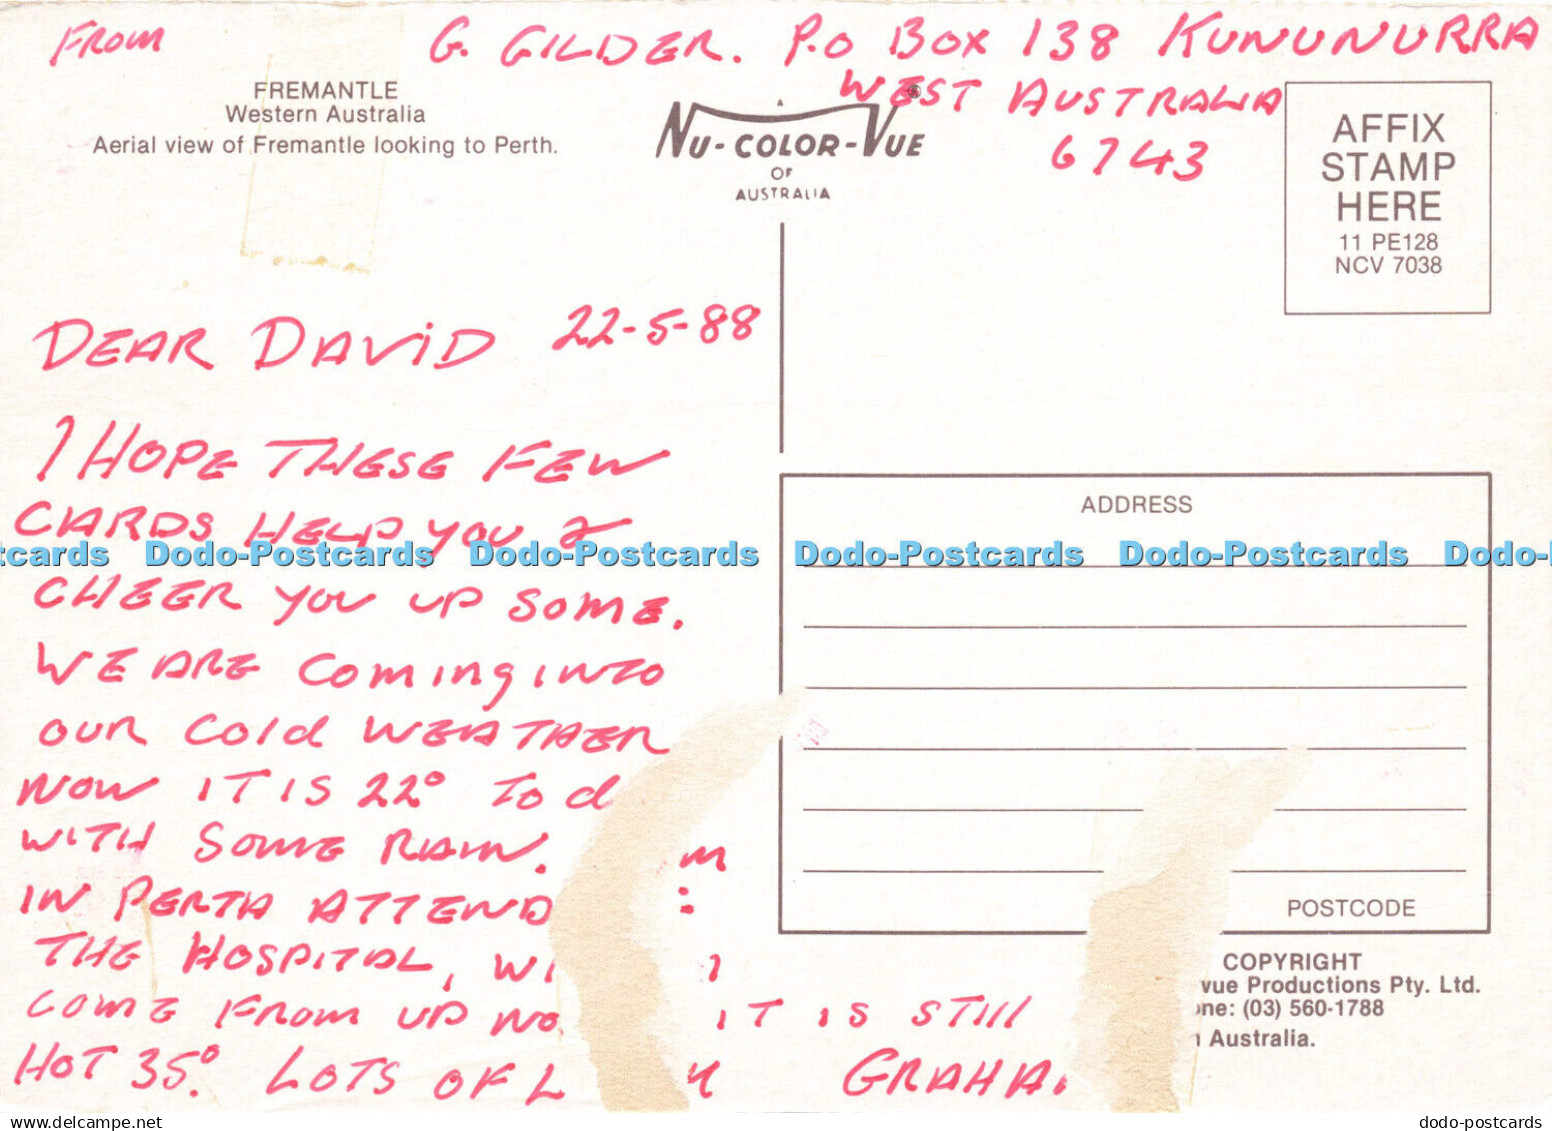 FROM G. GILDER. P.O BOX 138 KUNUNURRA
WEST AUSTRALIA
6743
FREMANTLE
Western Australia
Aerial view of Fremantle looking to Perth.
A
NU-COLOR-VUE ®
OF
AUSTRALIA
AFFIX
STAMP
HERE
11 PE128
NCV 7038
DEAR DAVID 22-5-88
I HOPE THESE FEW
CARDS HELP YOU &
CHEER YOU UP SOME.
WE ARE COMING INTO
OUR COLD WEATHER
NOW IT IS 22° TO D
WITH SOME RAIN. M
IN PERTH ATTEND
THE HOSPITAL, WI
COME FROM UP NO IT IS STILL
HOT 35°. LOTS OF L GRAHA
ADDRESS
POSTCODE
COPYRIGHT
vue Productions Pty. Ltd.
one: (03) 560-1788
n Australia.
tcards Dodo-Postcards Dodo-Postcards Dodo-Postcards Dodo-Postcards Dodo-
dodo-postcards